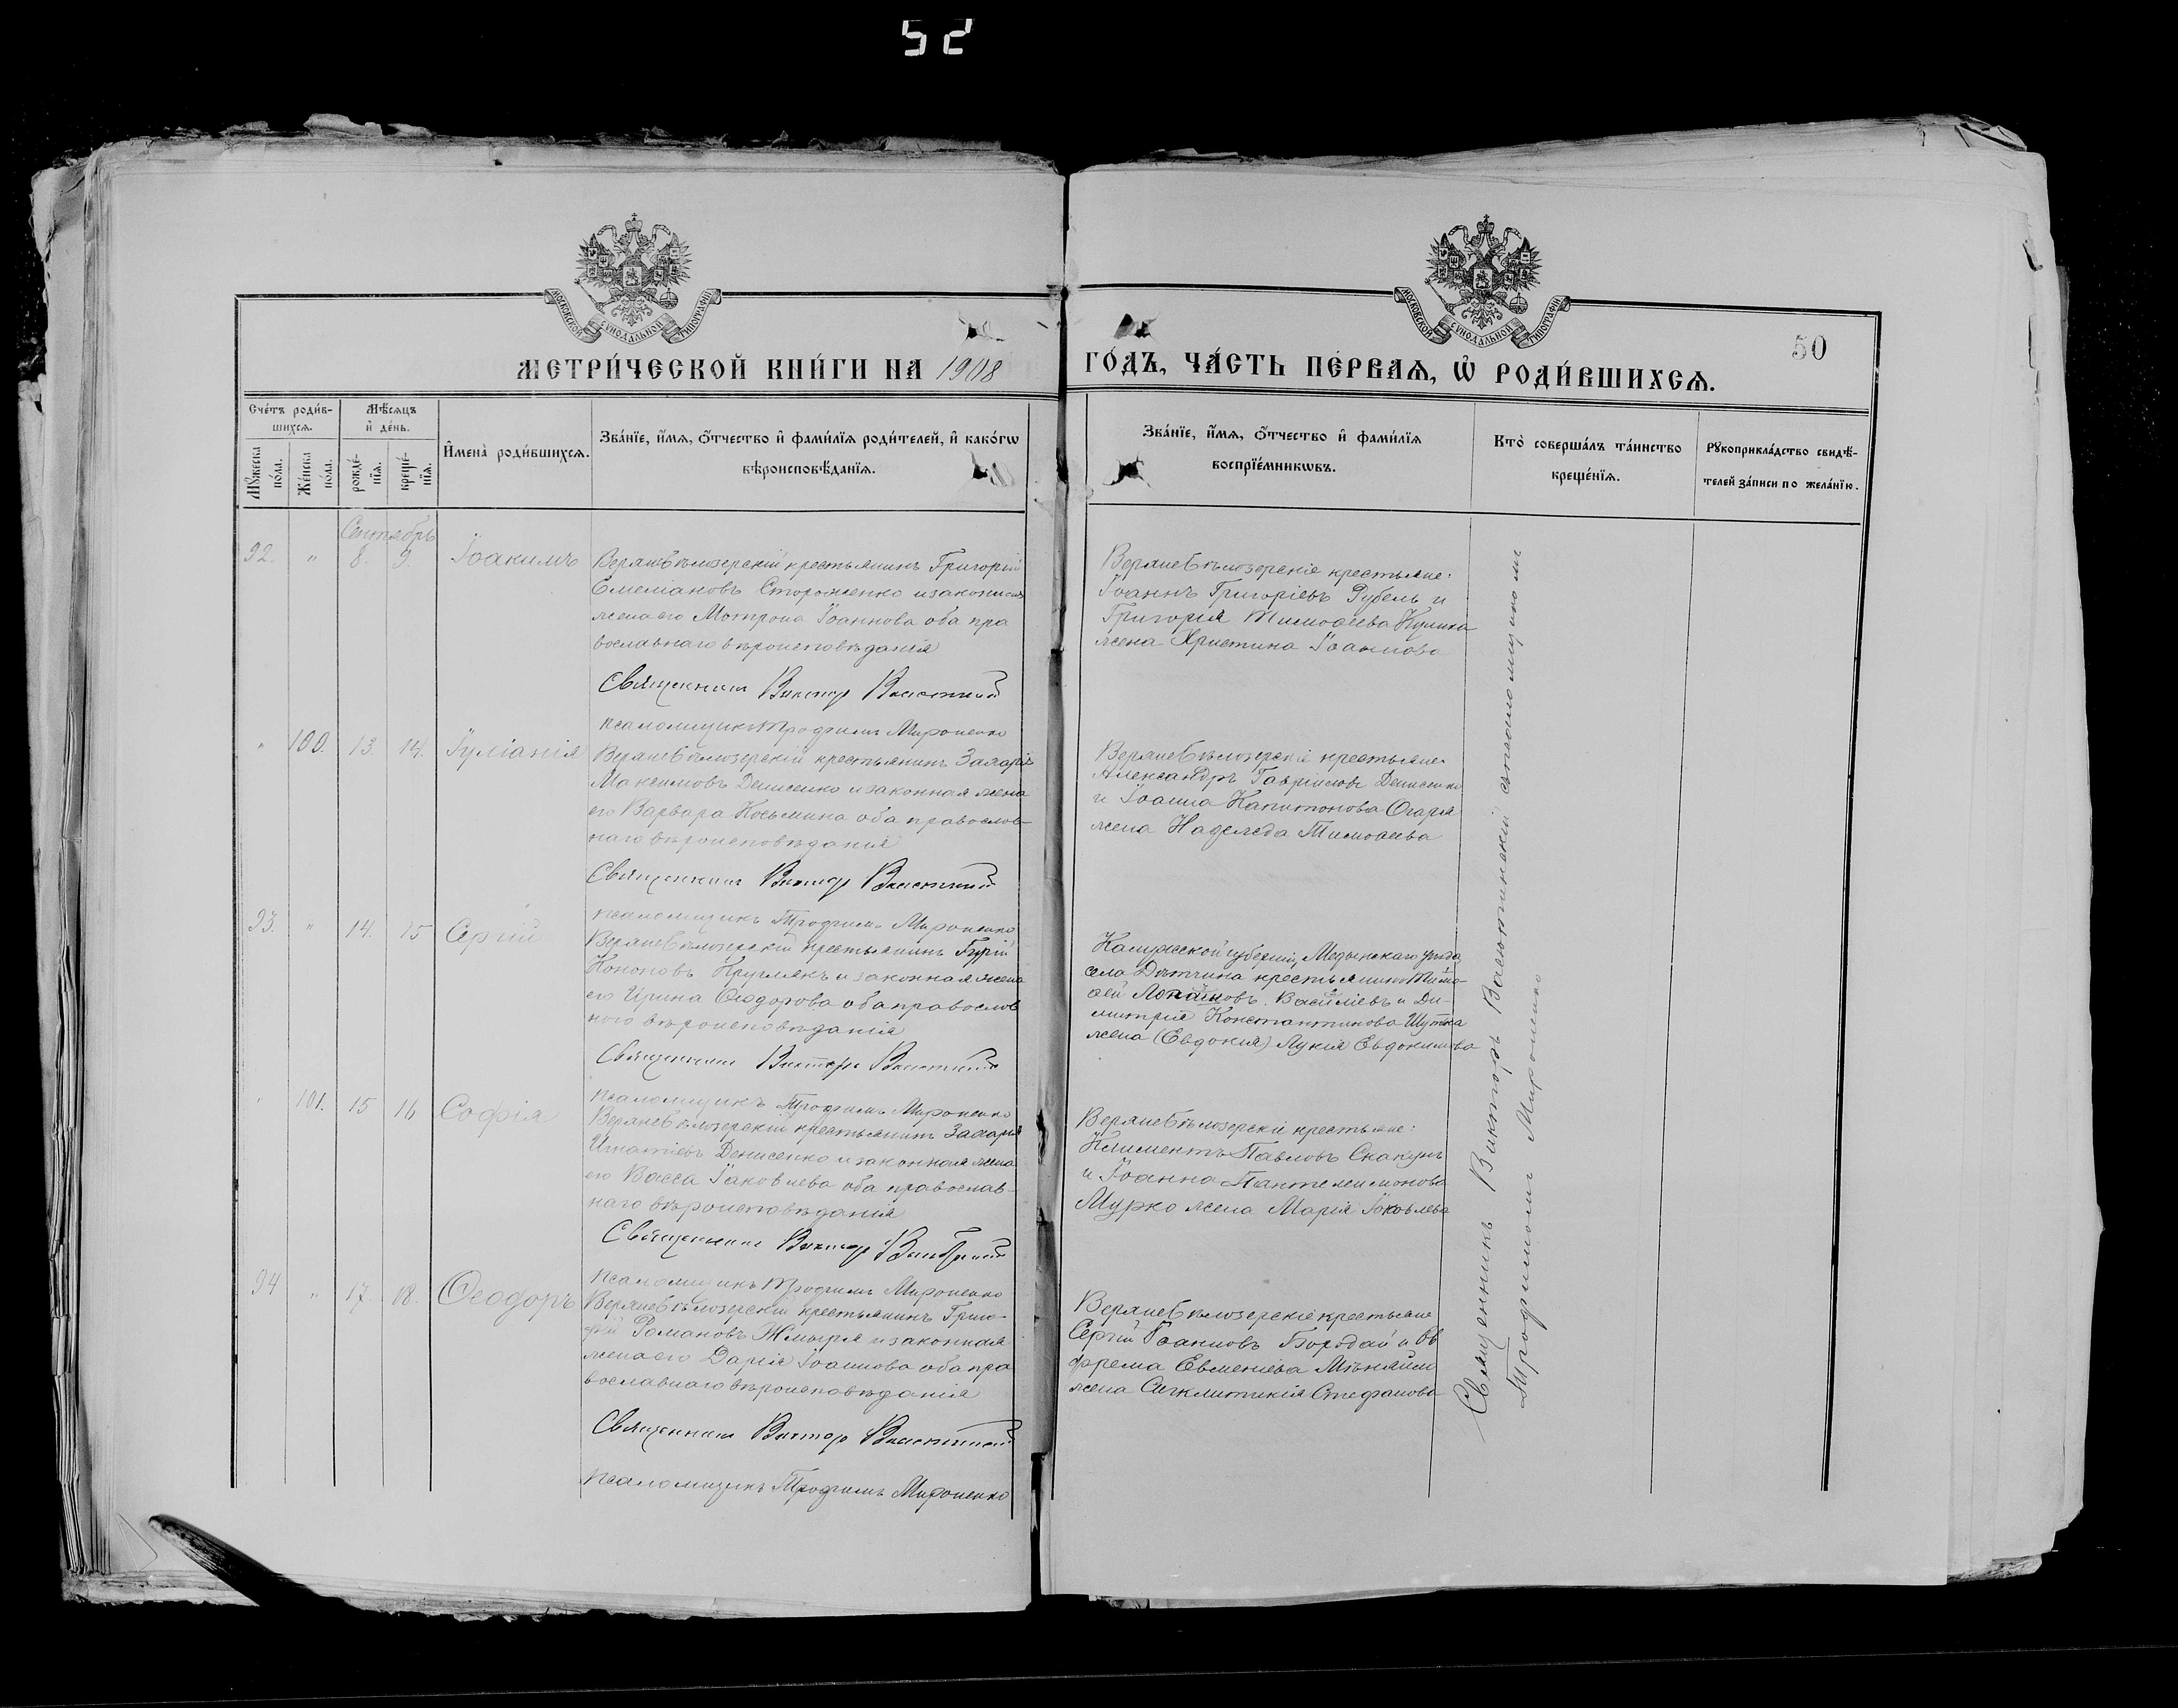 52
МОСКОВСКОЙ СѴНОДАЛЬНОЙ ТИПОГРАФІИ
МОСКОВСКОЙ СѴНОДАЛЬНОЙ ТИПОГРАФІИ
50
МЕТРИ́ЧЕСКОЙ КНИ́ГИ НА 1908 ГО́ДЪ, ЧА́СТЬ ПЕ́РВАѦ, Ѽ РОДИ́ВШИХСѦ.
Сче́тъ роди́в-
шихсѧ.
Мꙋжеска по́ла.
Же́нска по́ла.
Мѣ́сѧцъ
и҆ де́нь.
рожде́-
нїѧ.
креще́-
нїѧ.
И҆мена̀ роди́вшихсѧ.
Зва́нїе, и҆́мѧ, ѻ҆́тчество и҆ фами́лїѧ роди́телей, и҆ како́гѡ
вѣроисповѣ́данїѧ.
Зва́нїе, и҆́мѧ, ѻ҆́тчество и҆ фами́лїѧ
воспрїе́мникѡвъ.
Кто̀ соверша́лъ та́инство
креще́нїѧ.
Рꙋкоприкла́дство свидѣ́-
телей за́писи по жела́нїю.
Сентябрь
92. " 8. 9. Іоакимъ
Верхнебѣлозерскій крестьянинъ Григорій
Емеліановъ Стороженко и законная
жена его Мотрона Іоаннова оба пра
вославнаго вѣроисповѣданія
Священникъ Викторъ
псаломщикъ Трофимъ Мироненко
Верхнебѣлозерскіе крестьяне:
Іоаннъ Григоріевъ Рубель и
Григорія Тимоѳеева Кулика
жена Христина Іоаннова
" 100. 13. 14. Іуліанія
Верхнебѣлозерскій крестьянинъ Захарія
Максимовъ Денисенко и законная жена
его Варвара Косьмина оба православ-
наго вѣроисповѣданія
Священникъ Викторъ
псаломщикъ Трофимъ Мироненко
Верхнебѣлозерскіе крестьяне
Александръ Гавріиловъ Денисенко
и Іоанна Капитонова Огаря
жена Надежда Тимоѳеева
93. " 14. 15 Сергій
Верхнебѣлозерскій крестьянинъ Гурій
Кононовъ Круглякъ и законная жена
его Ирина Ѳеодорова оба православ
наго вѣроисповѣданія
Священникъ Викторъ
псаломщикъ Трофимъ Мироненко
Калужской губерніи, Медынскаго уѣзда
села Дятчина крестьянинъ Тимо-
ѳей Васіліевъ и Ди-
митрія Константинова Шутка
жена (Евдокія) Лукія Евдокимова
" 101. 15 16 Софія
Верхнебѣлозерскій крестьянинъ Захарія
Игнатіевъ Денисенко и законная жена
его Васса Іаковлева оба православ-
наго вѣроисповѣданія
Священникъ Викторъ
псаломщикъ Трофимъ Мироненко
Верхнебѣлозерскіе крестьяне:
Климентъ Павловъ Скакунъ
и Іоанна Пантелеимонова
Мурко жена Марія Іаковлева
94 " 17. 18. Ѳеодоръ
Верхнебѣлозерскій крестьянинъ
Романовъ Жмыря и законная
жена его Дарія Іоаннова оба пра
вославнаго вѣроисповѣданія
Священникъ Викторъ
псаломщикъ Трофимъ Мироненко
Верхнебѣлозерскіе крестьяне
Сергій Іоанновъ Бородай и Ев
фрема Евменіева
жена Сигклитикія Стефанова
Священникъ Викторъ съ псаломщикомъ
Трофимомъ Мироненко